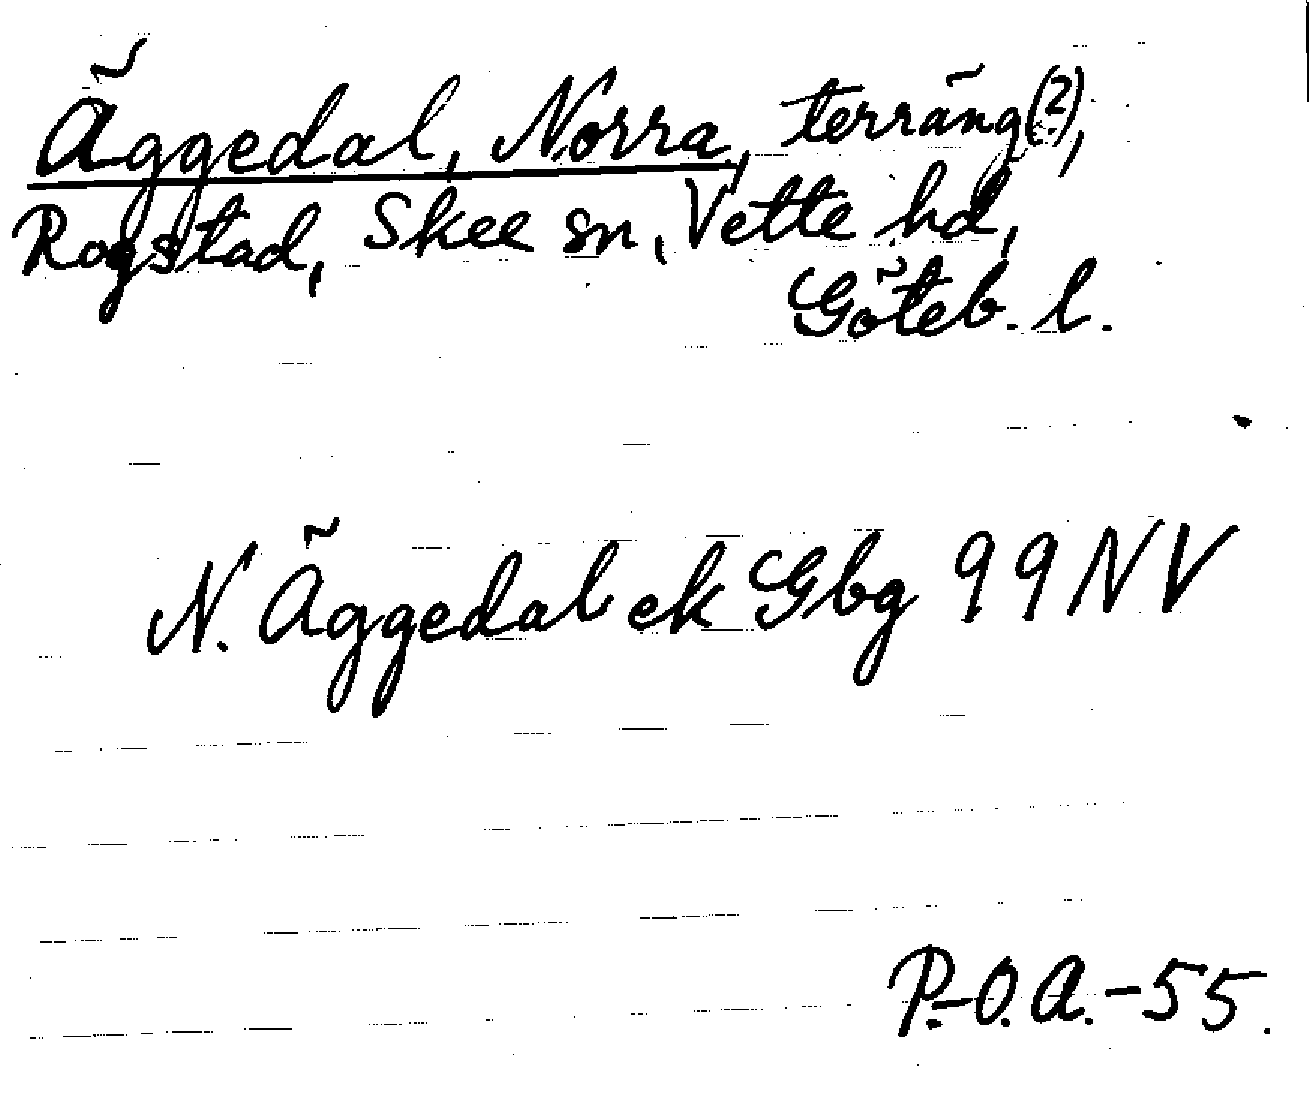 Äggedal, Norra, terräng(?),
Rogstad, Skee sn, Vette hd,
Göteb. l.
N. Äggedal ek Gbg 99 NV
P.-O. A.-55.